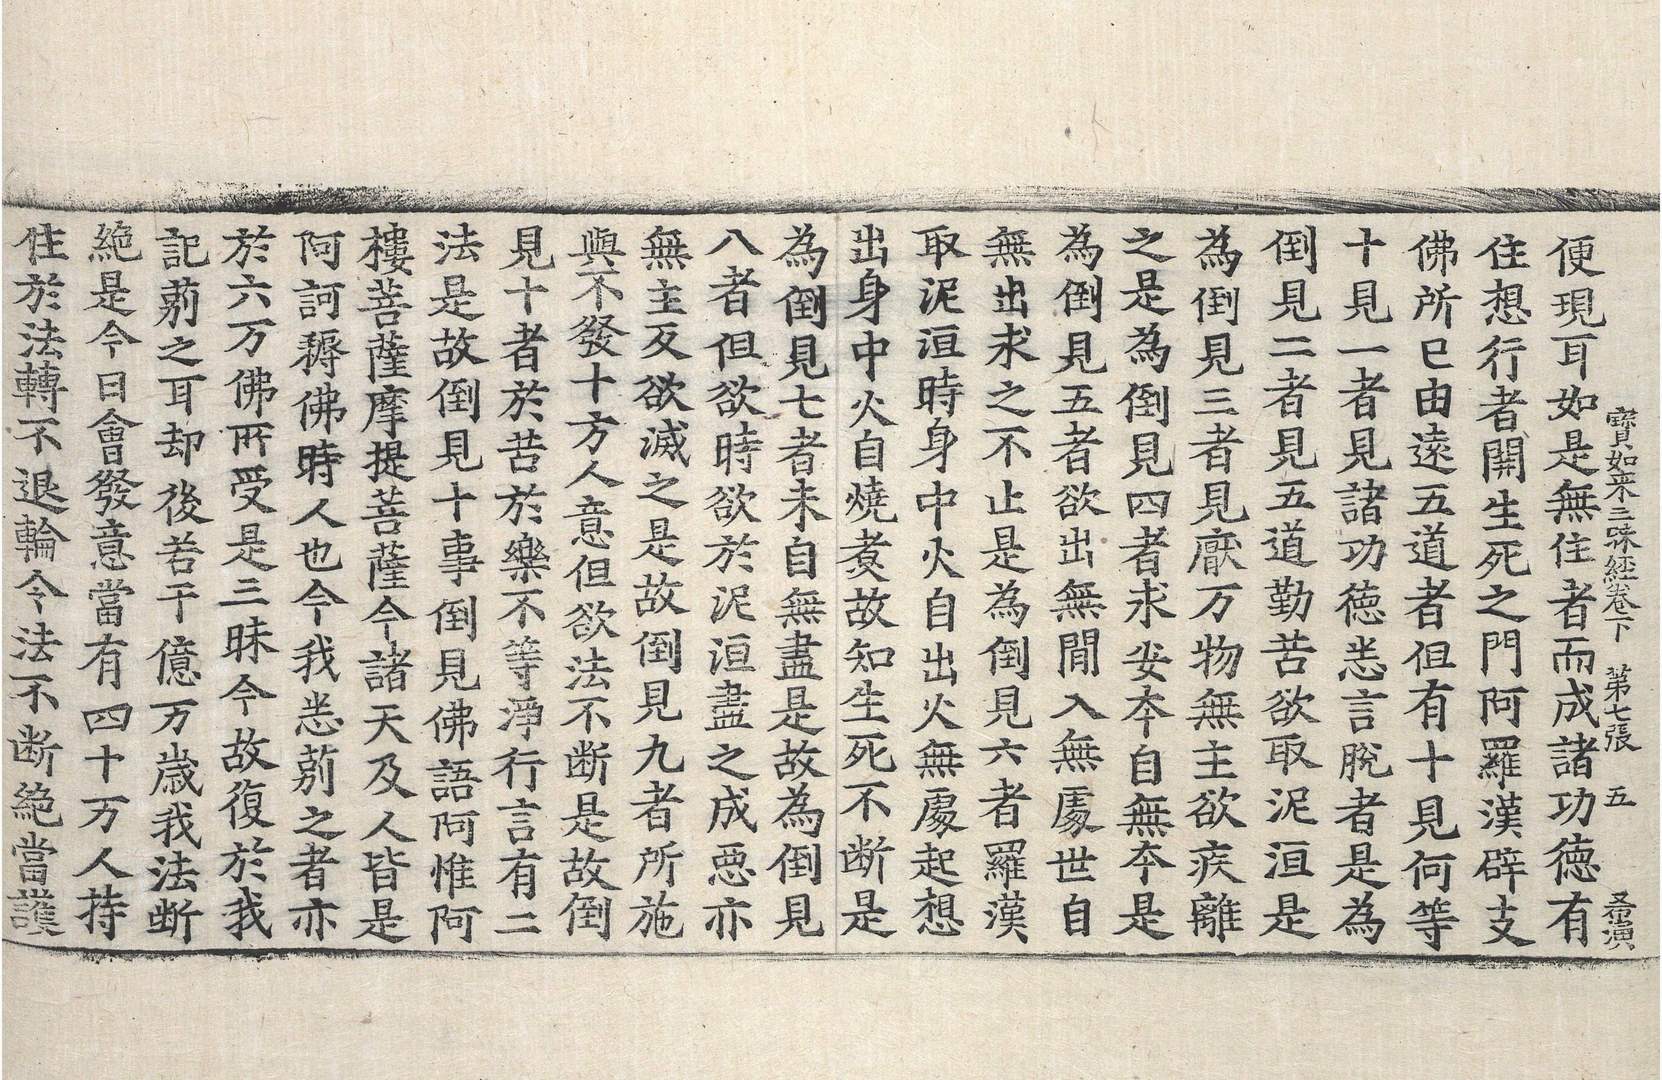 寶如来三昧經卷下　第七張　五
便現耳如是無住者而成諸功德有
住想行者開生死之門阿羅漢辟支
佛所已由遠五道者但有十見何等
十見一者見諸功德悉言脫者是為
倒見二者見五道勤苦欲取泥洹是
為倒見三者見厭万物無主欲疾離
之是為倒見四者求㝵本自無本是
為倒見五者欲出無閒入無處世自
無出求之不止是為倒見六者羅漢
取泥洹時身中火自出火無處起想
出身中火自燒煑故知生死不断是
為倒見七者未自無盡是故為倒見
八者但欲時欲於泥洹盡之成惡亦
無主反欲滅之是故倒見九者所施
與不發十方人意但欲法不断是故倒
見十者於苦於樂不等淨行言有二
法是故倒見十事倒見佛語阿惟阿
樓菩薩摩提菩薩今諸天及人皆是
阿訶耨佛時人也今我悉莂之者亦
於六万佛所受是三昧今故復於我
記莂之耳却後若干億万歲我法断
絶是今日會發意當有四十万人持
住於法轉不退輪令法不断絶當護